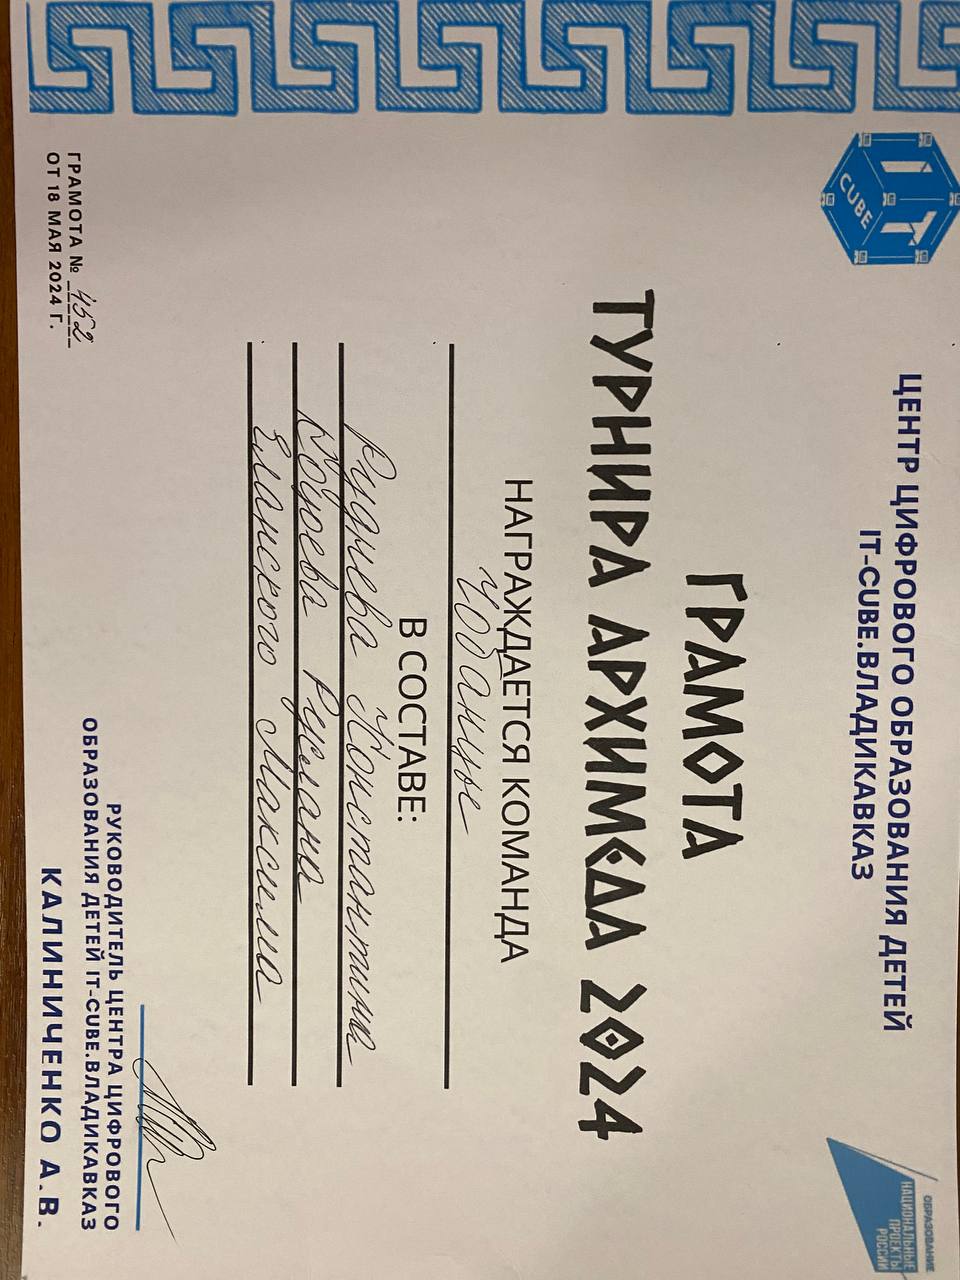 IT
CUBE
ЦЕНТР ЦИФРОВОГО ОБРАЗОВАНИЯ ДЕТЕЙ
IT-CUBE.ВЛАДИКАВКАЗ
ОБРАЗОВАНИЕ
НАЦИОНАЛЬНЫЕ
ПРОЕКТЫ
РОССИИ
ГРАМОТА
ТУРНИРА АРХИМЕДА 2024
НАГРАЖДАЕТСЯ КОМАНДА
Чобанцы
В СОСТАВЕ:
Руднева Константина
Коцоева Руслана
Еланского Максима
РУКОВОДИТЕЛЬ ЦЕНТРА ЦИФРОВОГО
ОБРАЗОВАНИЯ ДЕТЕЙ IT-CUBE.ВЛАДИКАВКАЗ
КАЛИНИЧЕНКО А.В.
ГРАМОТА № 452
ОТ 18 МАЯ 2024 Г.